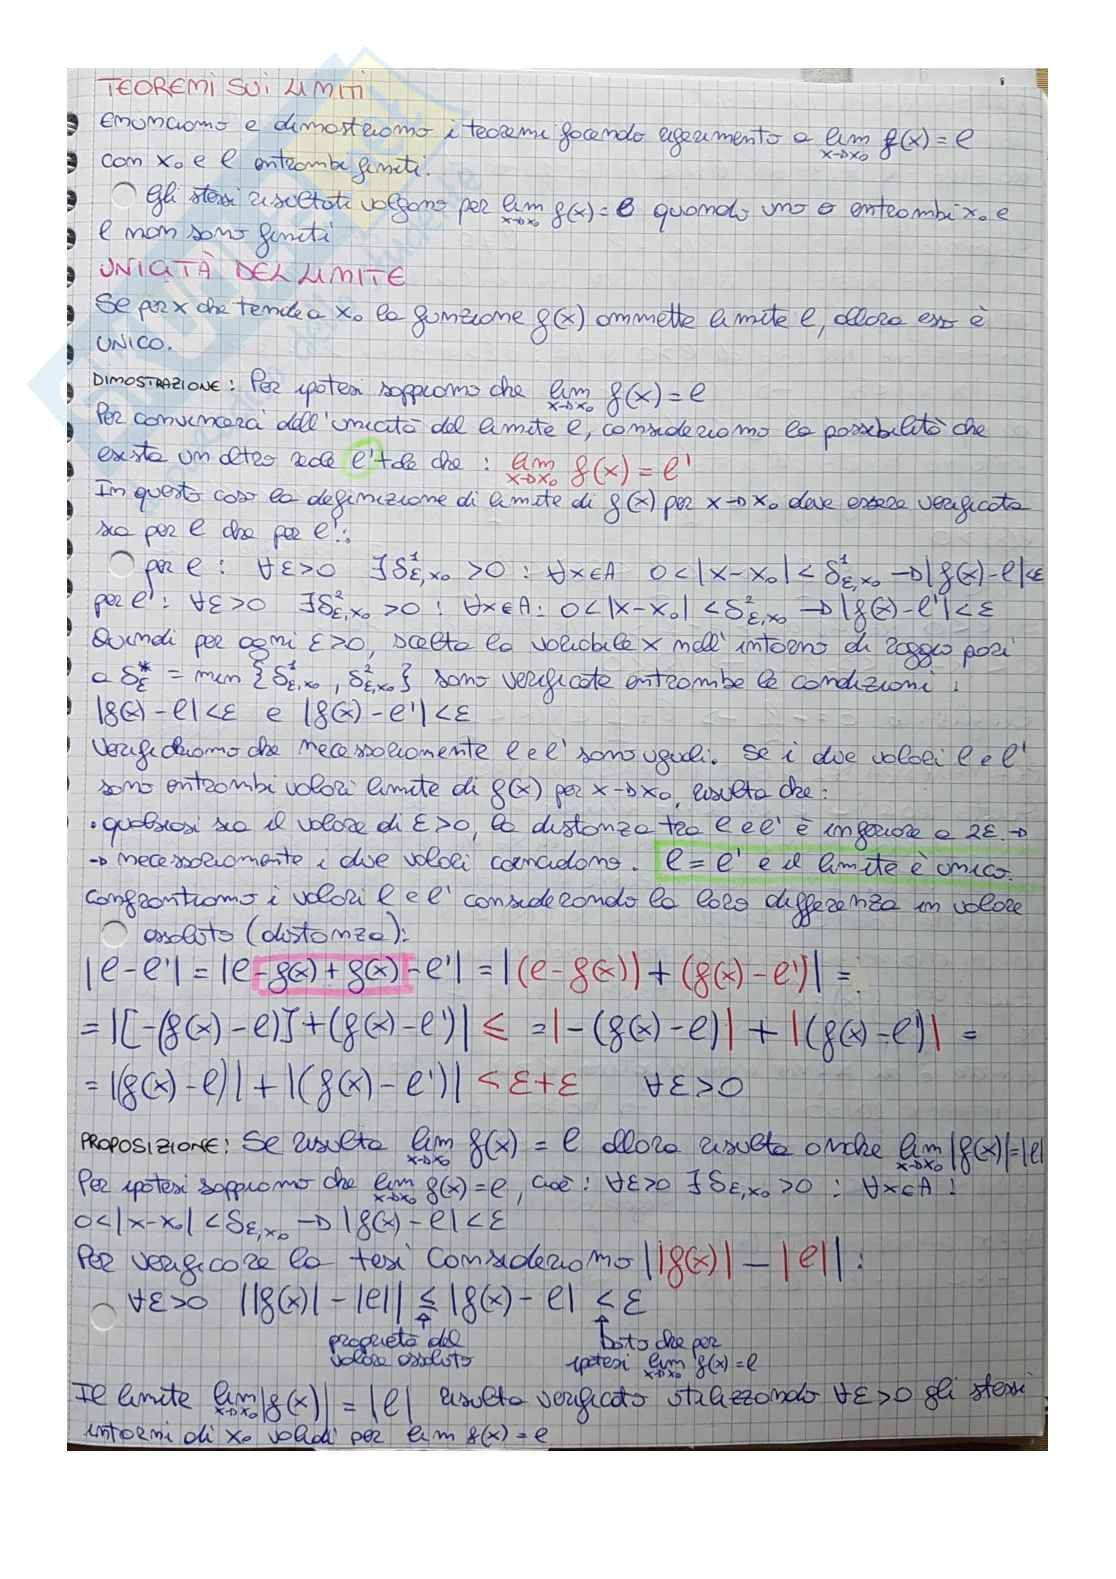 TEOREMI SUI LIMITI
enunciamo e dimostriamo i teoremi facendo riferimento a lim f(x) = l
x→x₀
con x₀ e l entrambi finiti.
gli stessi risultati valgono per lim f(x) = l quando uno o entrambi x₀ e
x→x₀
l non sono finiti
UNICITÀ DEL LIMITE
Se per x che tende a x₀ la funzione f(x) ammette limite l, allora esso è
UNICO.
DIMOSTRAZIONE: Per ipotesi sappiamo che lim f(x) = l
x→x₀
Per convincerci dell'unicità del limite l, consideriamo la possibilità che
esista un altro reale l' tale che : lim f(x) = l'
x→x₀
In questo caso la definizione di limite di f(x) per x→x₀ deve essere verificata
sia per l che per l':
per l : ∀ε>0 ∃δ¹ε,x₀ >0 : ∀x∈A 0<|x-x₀|<δ¹ε,x₀ →|f(x)-l|<ε
per l' : ∀ε>0 ∃δ²ε,x₀ >0 : ∀x∈A: 0<|x-x₀|<δ²ε,x₀ → |f(x)-l'|<ε
Quindi per ogni ε>0, scelta la variabile x nell'intorno di raggio pari
a δ*ε = min {δ¹ε,x₀ , δ²ε,x₀} sono verificate entrambe le condizioni :
|f(x)-l|<ε e |f(x)-l'|<ε
verifichiamo che necessariamente l e l' sono uguali. Se i due valori l e l'
sono entrambi valori limite di f(x) per x→x₀, risulta che:
• qualsiasi sia il valore di ε>0, la distanza tra l e l' è inferiore a 2ε →
→ necessariamente i due valori coincidono. l = l' e il limite è unico.
confrontiamo i valori l e l' considerando la loro differenza in valore
assoluto (distanza):
|l-l'| = |l-f(x)+f(x)-l'| = |(l-f(x))+(f(x)-l')| =
= |[-(f(x)-l)]+(f(x)-l')| ≤ =|-(f(x)-l)| + |(f(x)-l')| =
= |f(x)-l)| + |(f(x)-l')| < ε+ε ∀ε>0
PROPOSIZIONE: Se risulta lim f(x) = l allora risulta anche lim |f(x)|=|l|
x→x₀ x→x₀
Per ipotesi sappiamo che lim f(x) = l, cioè : ∀ε>0 ∃δε,x₀ >0 : ∀x∈A :
x→x₀
0<|x-x₀|<δε,x₀ → |f(x)-l|<ε
Per verificare la tesi consideriamo ||f(x)| - |l|| :
∀ε>0 ||f(x)|-|l|| ≤ |f(x)-l| < ε
proprietà del
valore assoluto
dato che per
ipotesi lim f(x) = l
x→x₀
Il limite lim |f(x)| = |l| risulta verificato utilizzando ∀ε>0 gli stessi
x→x₀
intorni di x₀ validi per lim f(x) = l